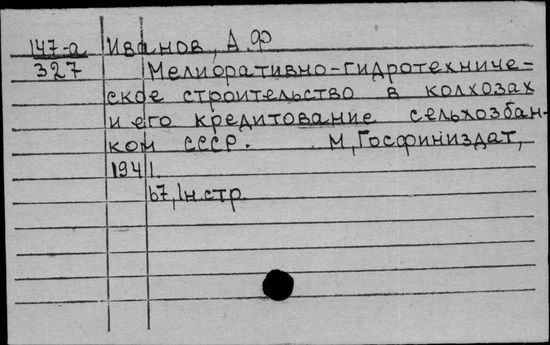 147-а Иванов, А.Ф
327 Мелиоративно-гидротехниче-
ское строительство в колхозах
и его кредитование сельхозбан-
ком СССР. М, Госфиниздат,
1941.
67, 1н.стр.